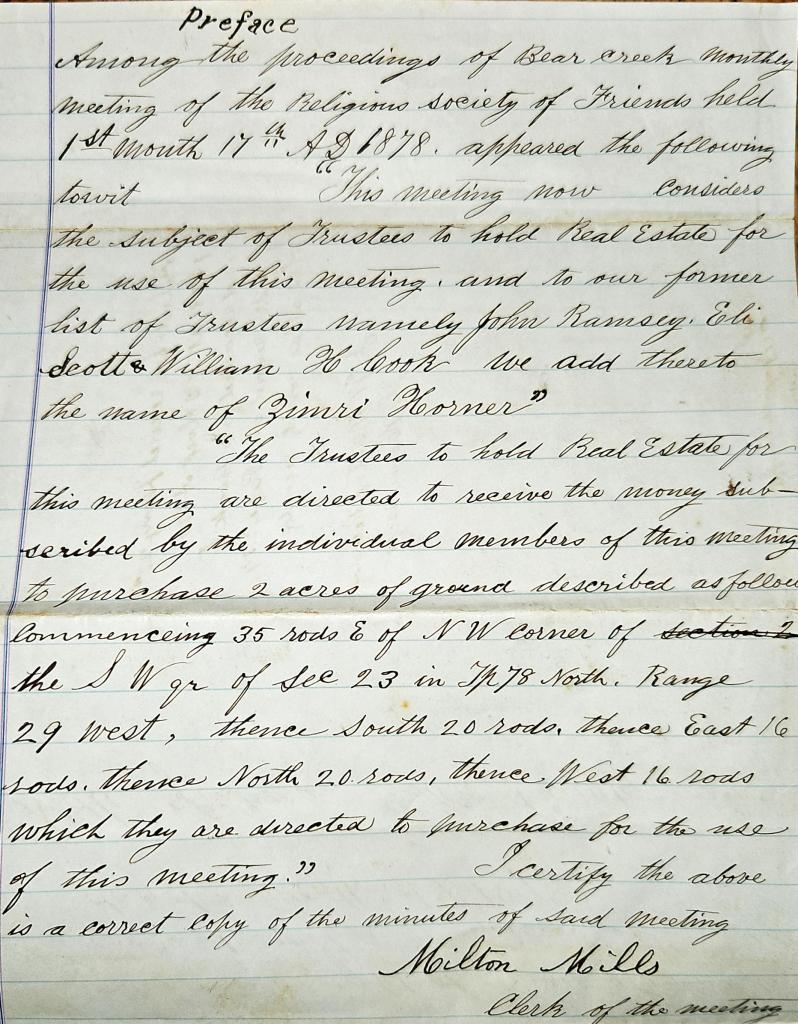 Preface
Among the proceedings of Bear creek monthly
meeting of the Religious society of Friends held
1st month 17th A D 1878. appeared the following
towit "This meeting now considers
the subject of Trustees to hold Real Estate for
the use of this meeting. and to our former
list of Trustees namely John Ramsey. Eli
Scott & William H Cook we add thereto
the name of Zimri Horner"
"The Trustees to hold Real Estate for
this meeting are directed to receive the money sub-
scribed by the individual members of this meeting
to purchase 2 acres of ground described as follow
Commenceing 35 rods E of N W corner of section 2
the S W qr of Sec 23 in Tp 78 North. Range
29 west, thence South 20 rods, thence East 16
rods. thence North 20 rods, thence West 16 rods
which they are directed to purchase for the use
of this meeting." I certify the above
is a correct copy of the minutes of said meeting
Milton Mills
Clerk of the meeting